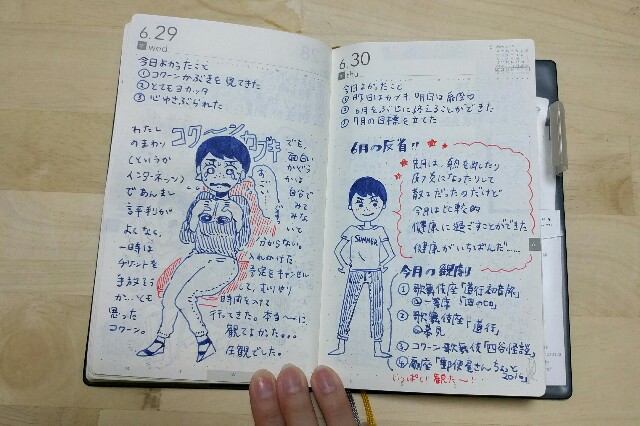 6.29
wed
今日よかったこと
① コクーンかぶきを見てきた
② とてもヨカッタ
③ 心ゆさぶられた
コクーンカブキ
わたし
のまわり
(というか
インターネッツ)
であんまし
評判が
よくなく、
一時は
チケットを
手放そう
か…とも
思った
コクーン。
でも、
面白い
かどう
かは
自分で
みて
みな
いと
わからない。
予定をキャンセル
して、むりやり
時間を入れて
行ってきた。本当〜に
観てよかった。。。
圧観でした。
すごい
6.30
thu
今日よかったこと
① 昨日はカブキ 明日は扇座
② 6月をぶじに終えることができた
③ 7月の目標を立てた
6月の反省!!
先月は、熱を出したり
尿炎になったりして
散々だったのだけど
今月は比較的
健康に過ごすことができた
健康がいちばんだ……
SUMMER
今月の観劇
① 歌舞伎座「道行初音旅」
② 歌舞伎座「道行」
幕見
③ コクーン歌舞伎「四谷怪談」
④ 扇座「郵便屋さんちょっと
2016」
いっぱい観た〜!